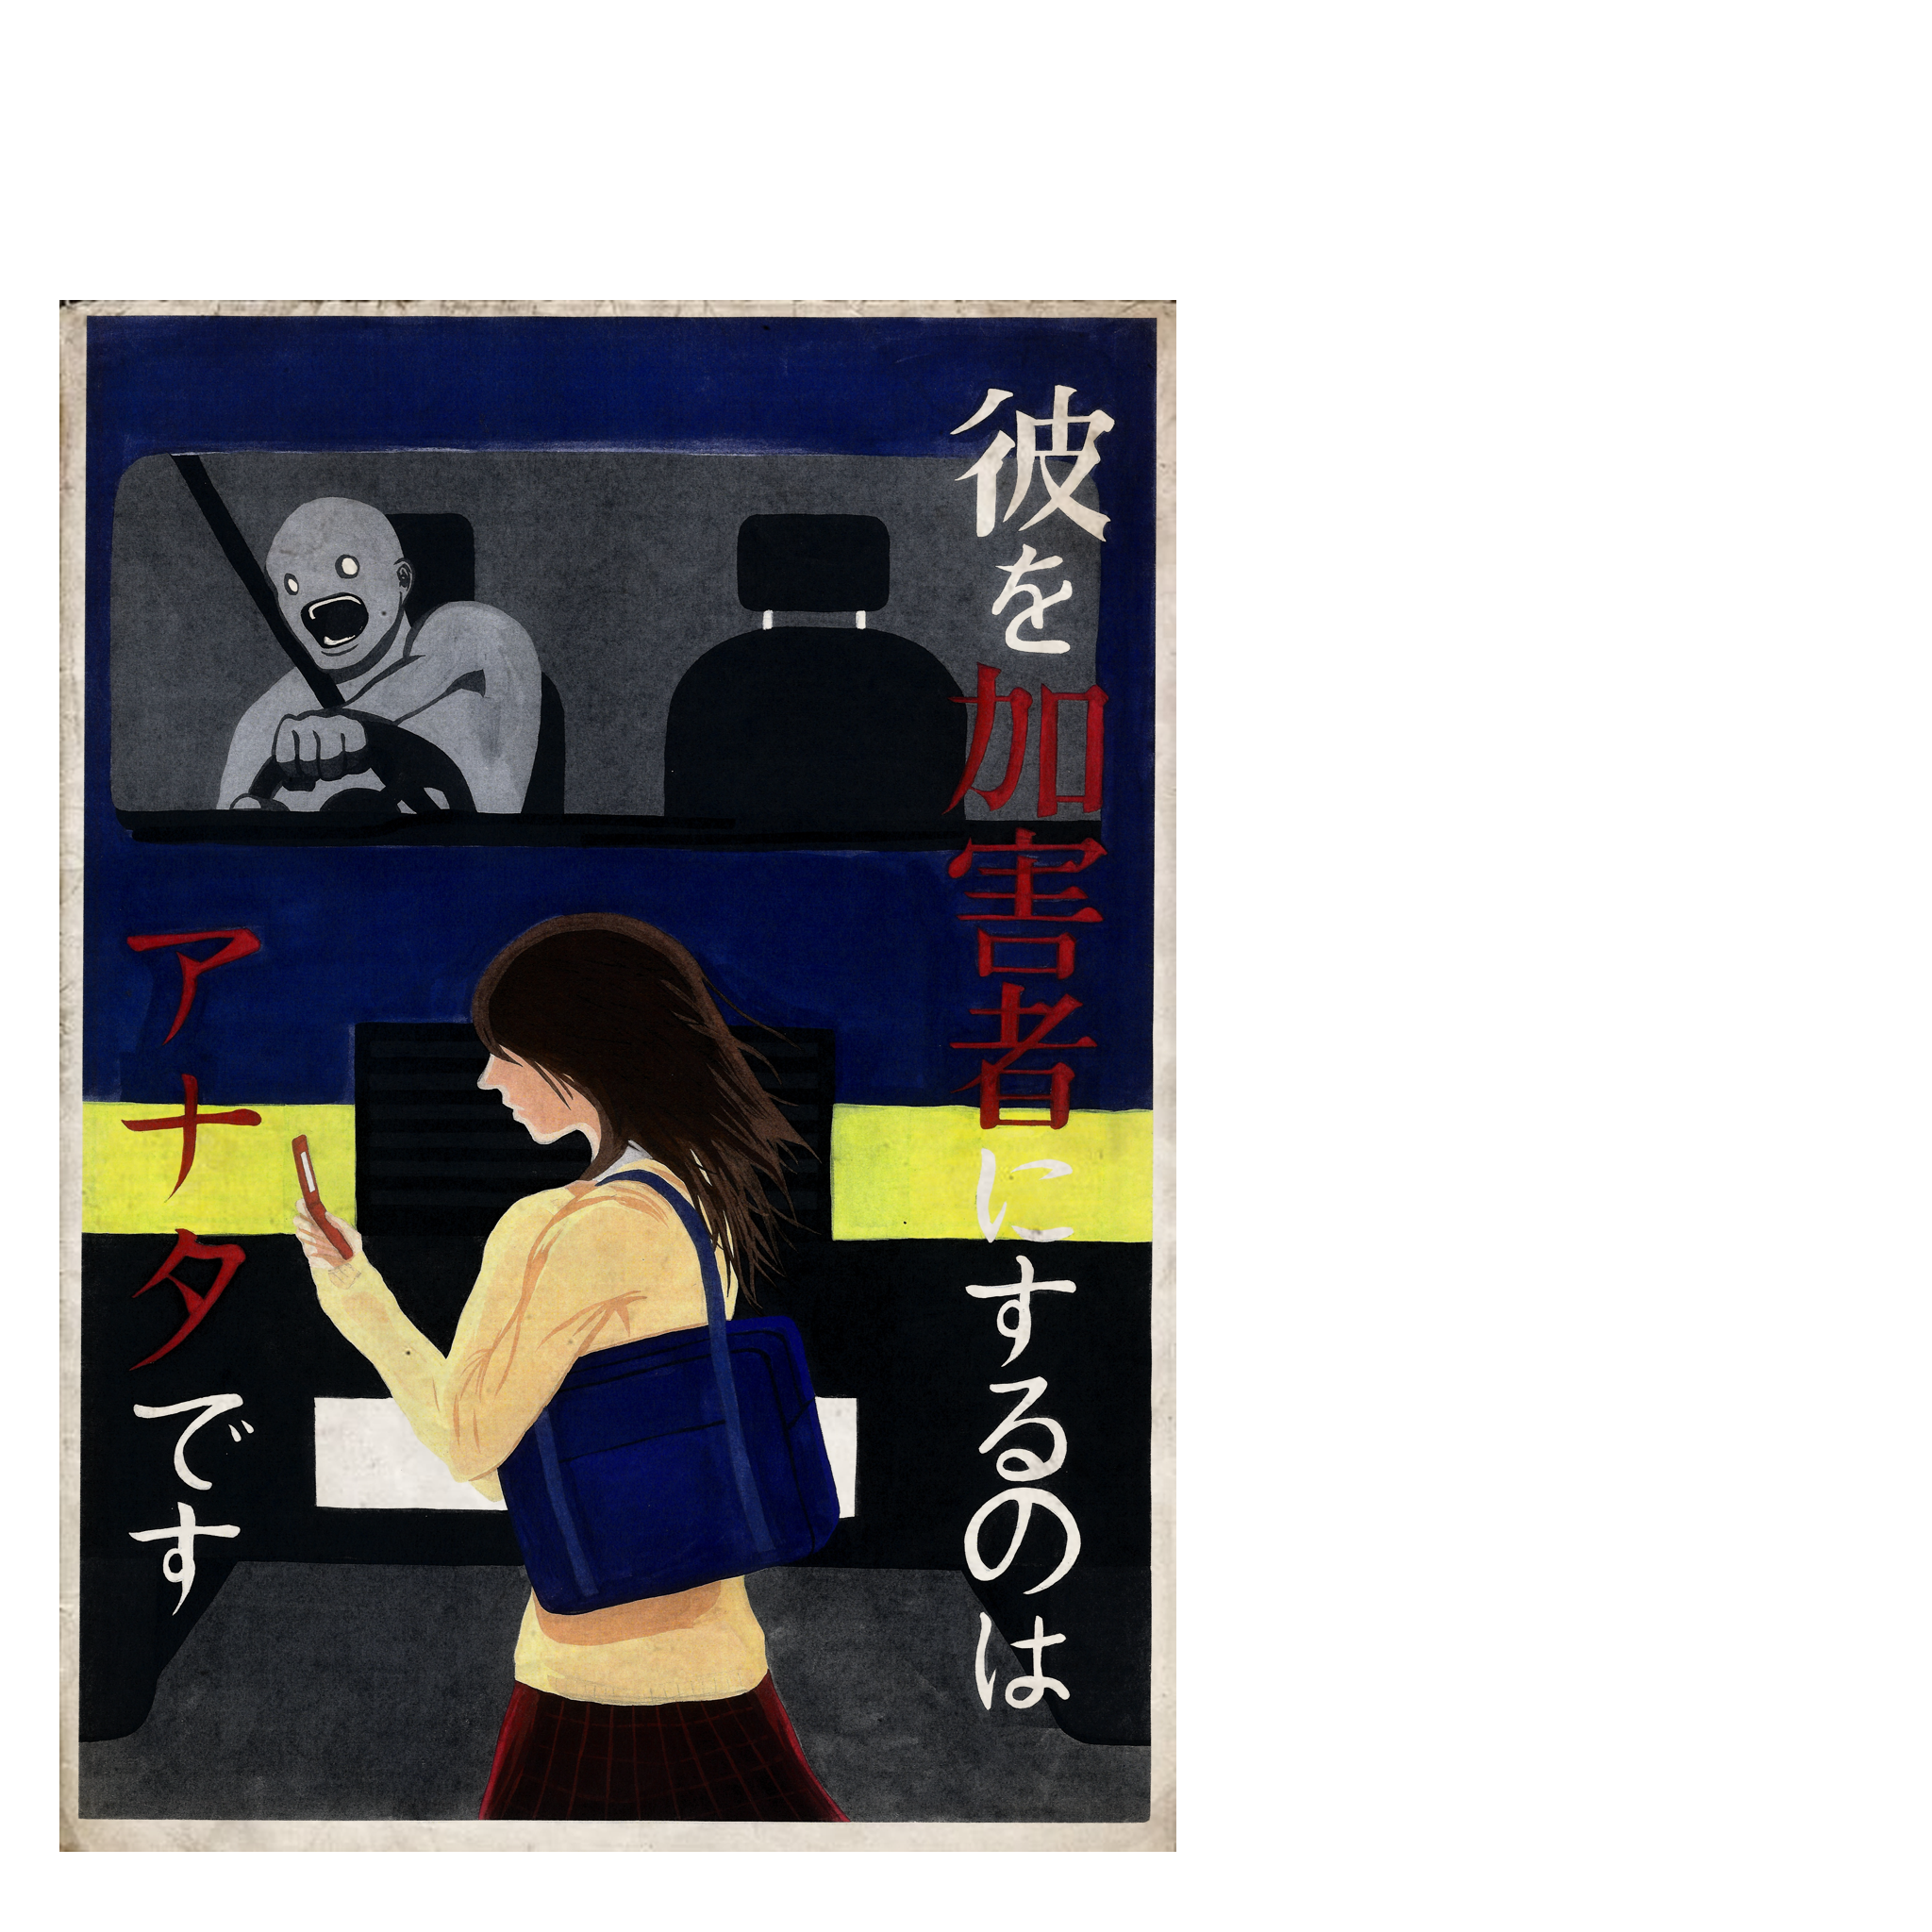 彼を加害者にするのは
アナタです